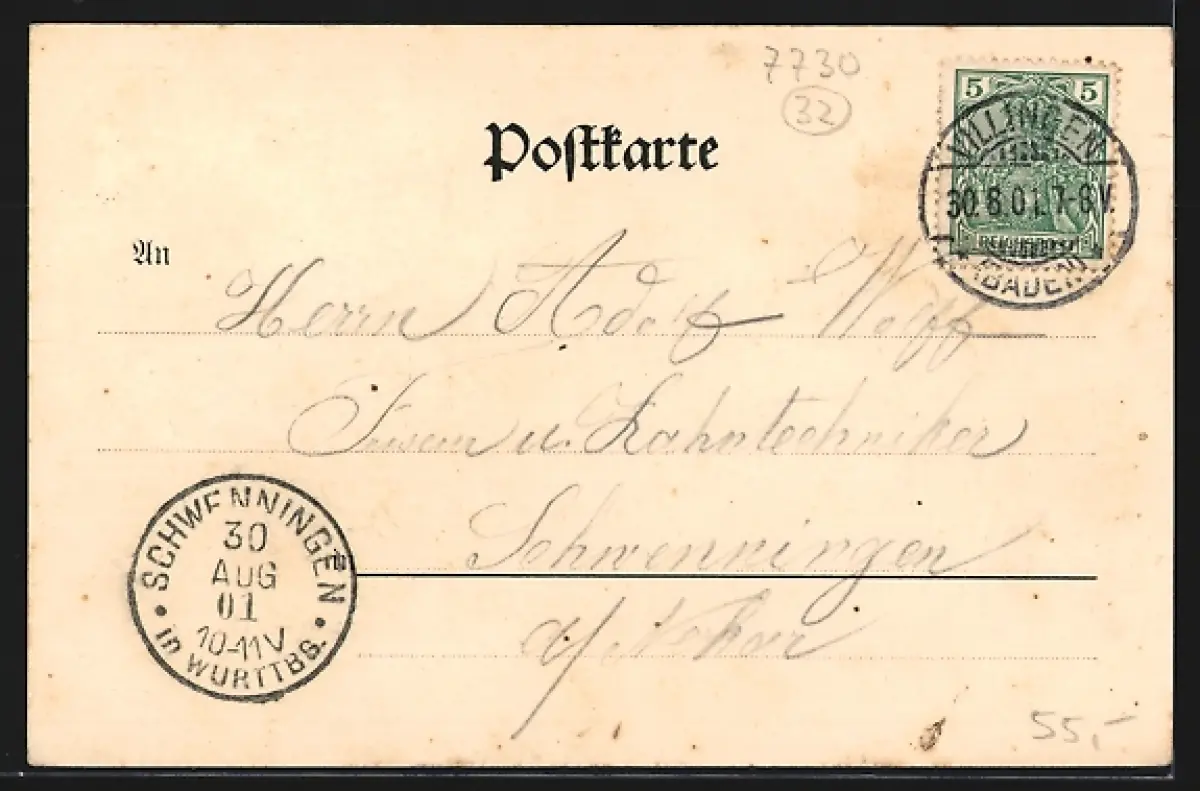 7730
32
Postkarte
5 5
VILLINGEN
30.8.01. 7-8V.
REICHSPOST
* (BADEN) *
An
Herrn Adolf Wolff
u. Zahntechniker
Schwenningen
a/ Neckar
SCHWENNINGEN
30
AUG
01
10-11V
in WÜRTTBG.
55,-